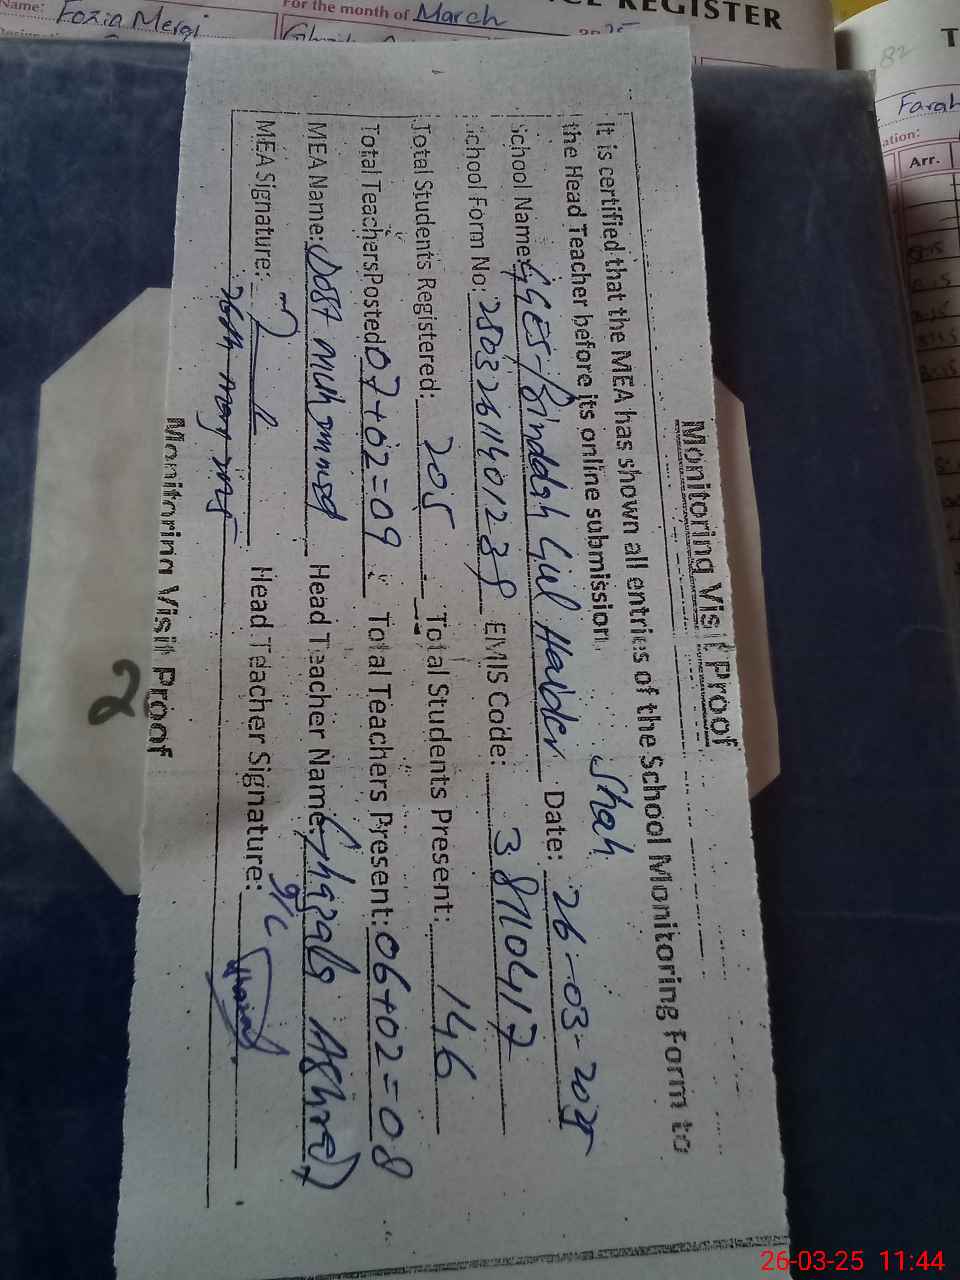 Name: Fozia
For the month of March
REGISTER
82
Farah
Arr.
Monitoring Visit Proof
It is certified that the MEA has shown all entries of the School Monitoring Form to
the Head Teacher before its online submission.
Shah
School Name: GGES-Pinddah Gul Haider Date: 26-03-2025
School Form No: EMIS Code: 38110417
Total Students Registered: 205 Total Students Present: 146
Total Teachers Posted 07+02=09 Total Teachers Present: 06+02=08
MEA Name: Dost Muhammad Head Teacher Name: Ghazala Ashraf
MEA Signature: Head Teacher Signature:
Monitoring Visit Proof
2
26-03-25 11:44